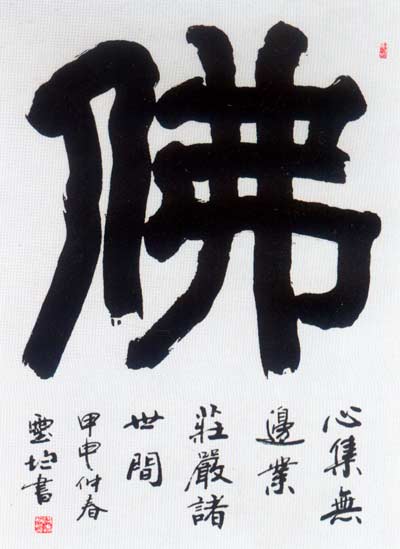 佛
心集無
邊業
莊嚴諸
世間
甲申仲春
雲均書